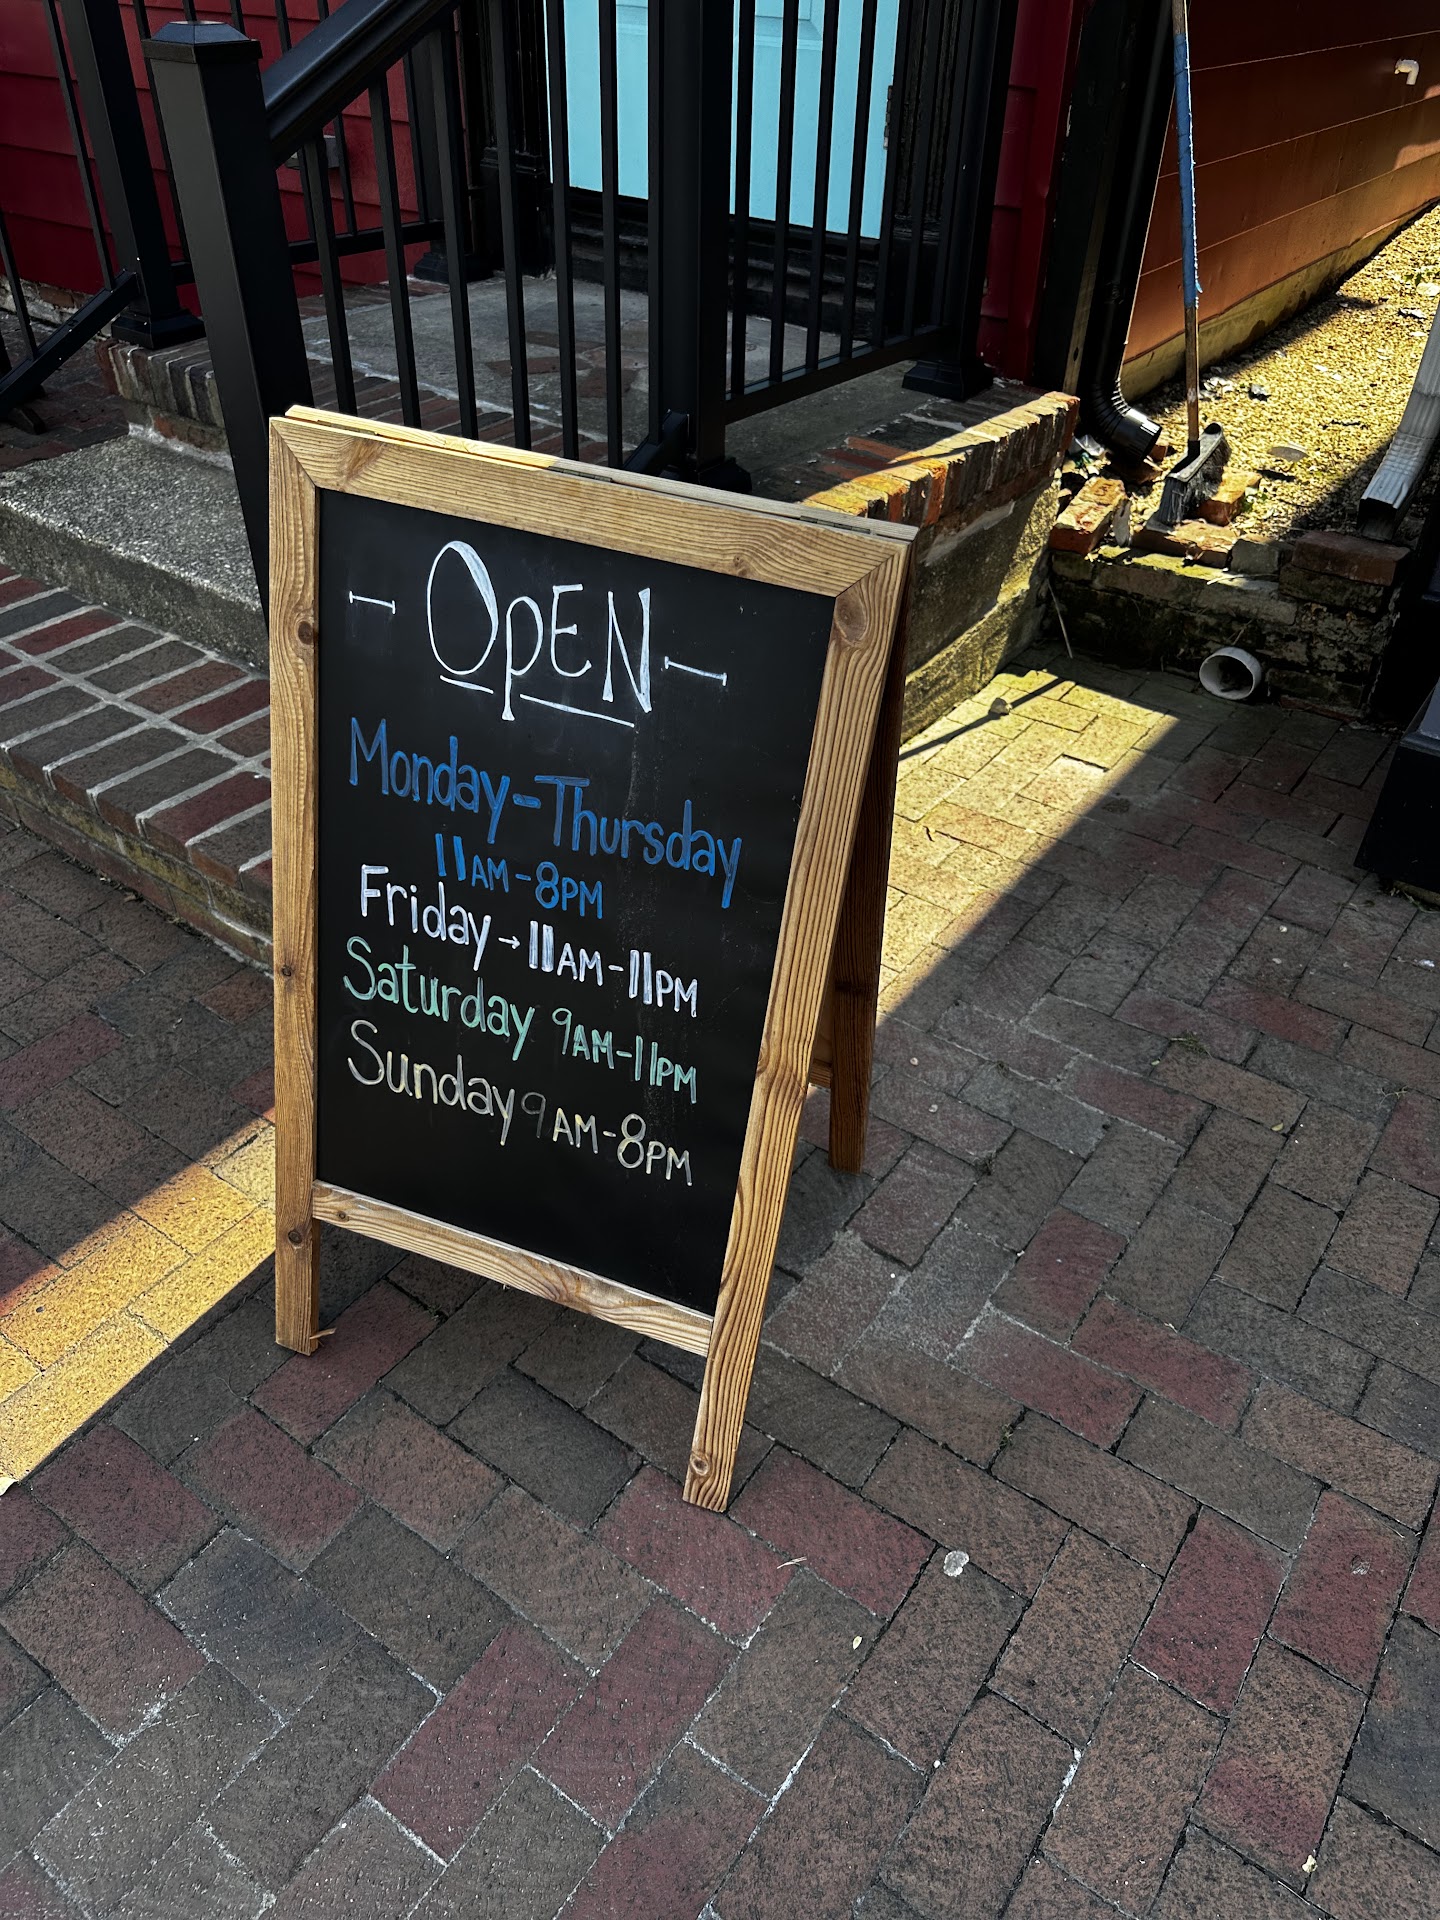 OpEN
Monday-Thursday
11AM-8PM
Friday→11AM-11PM
Saturday 9AM-11PM
Sunday 9AM-8PM